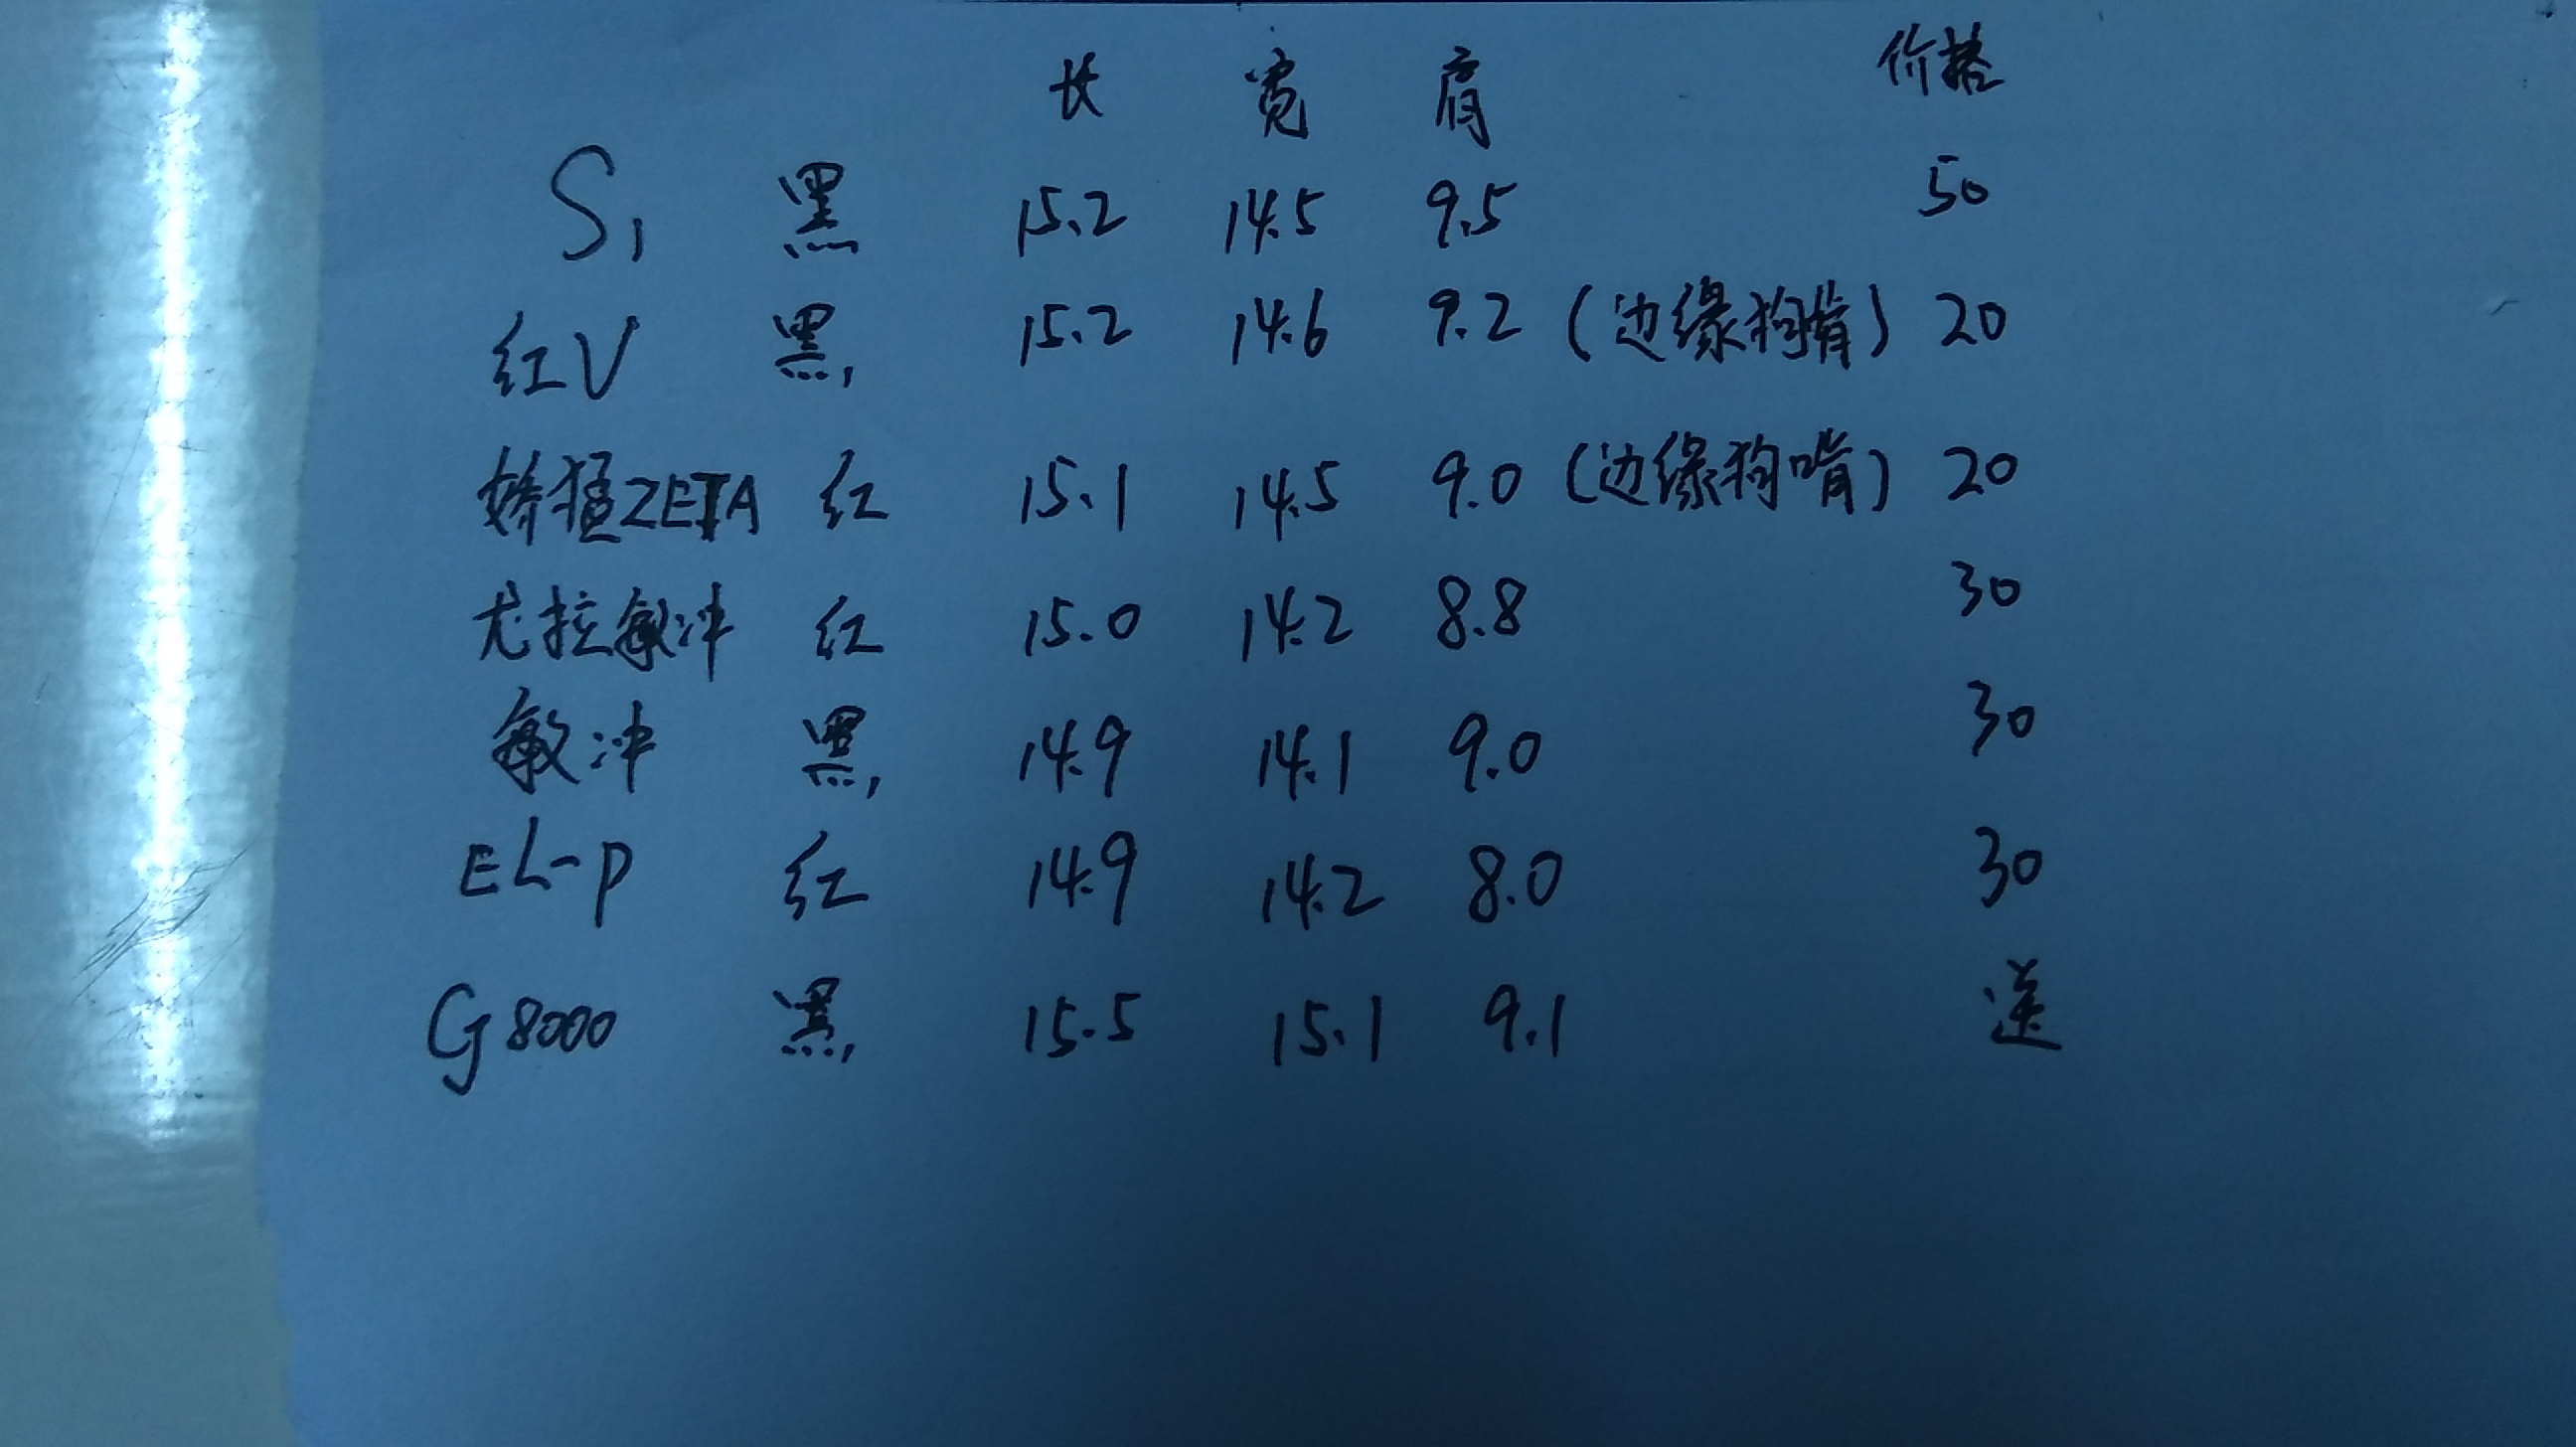 长 宽 肩 价格
S1 黑 15.2 14.5 9.5 50
红V 黑 15.2 14.6 9.2 (边缘狗啃) 20
娇猛ZETA 红 15.1 14.5 9.0 (边缘狗啃) 20
尤拉敏冲 红 15.0 14.2 8.8 30
敏冲 黑 14.9 14.1 9.0 30
EL-P 红 14.9 14.2 8.0 30
G8000 黑 15.5 15.1 9.1 送